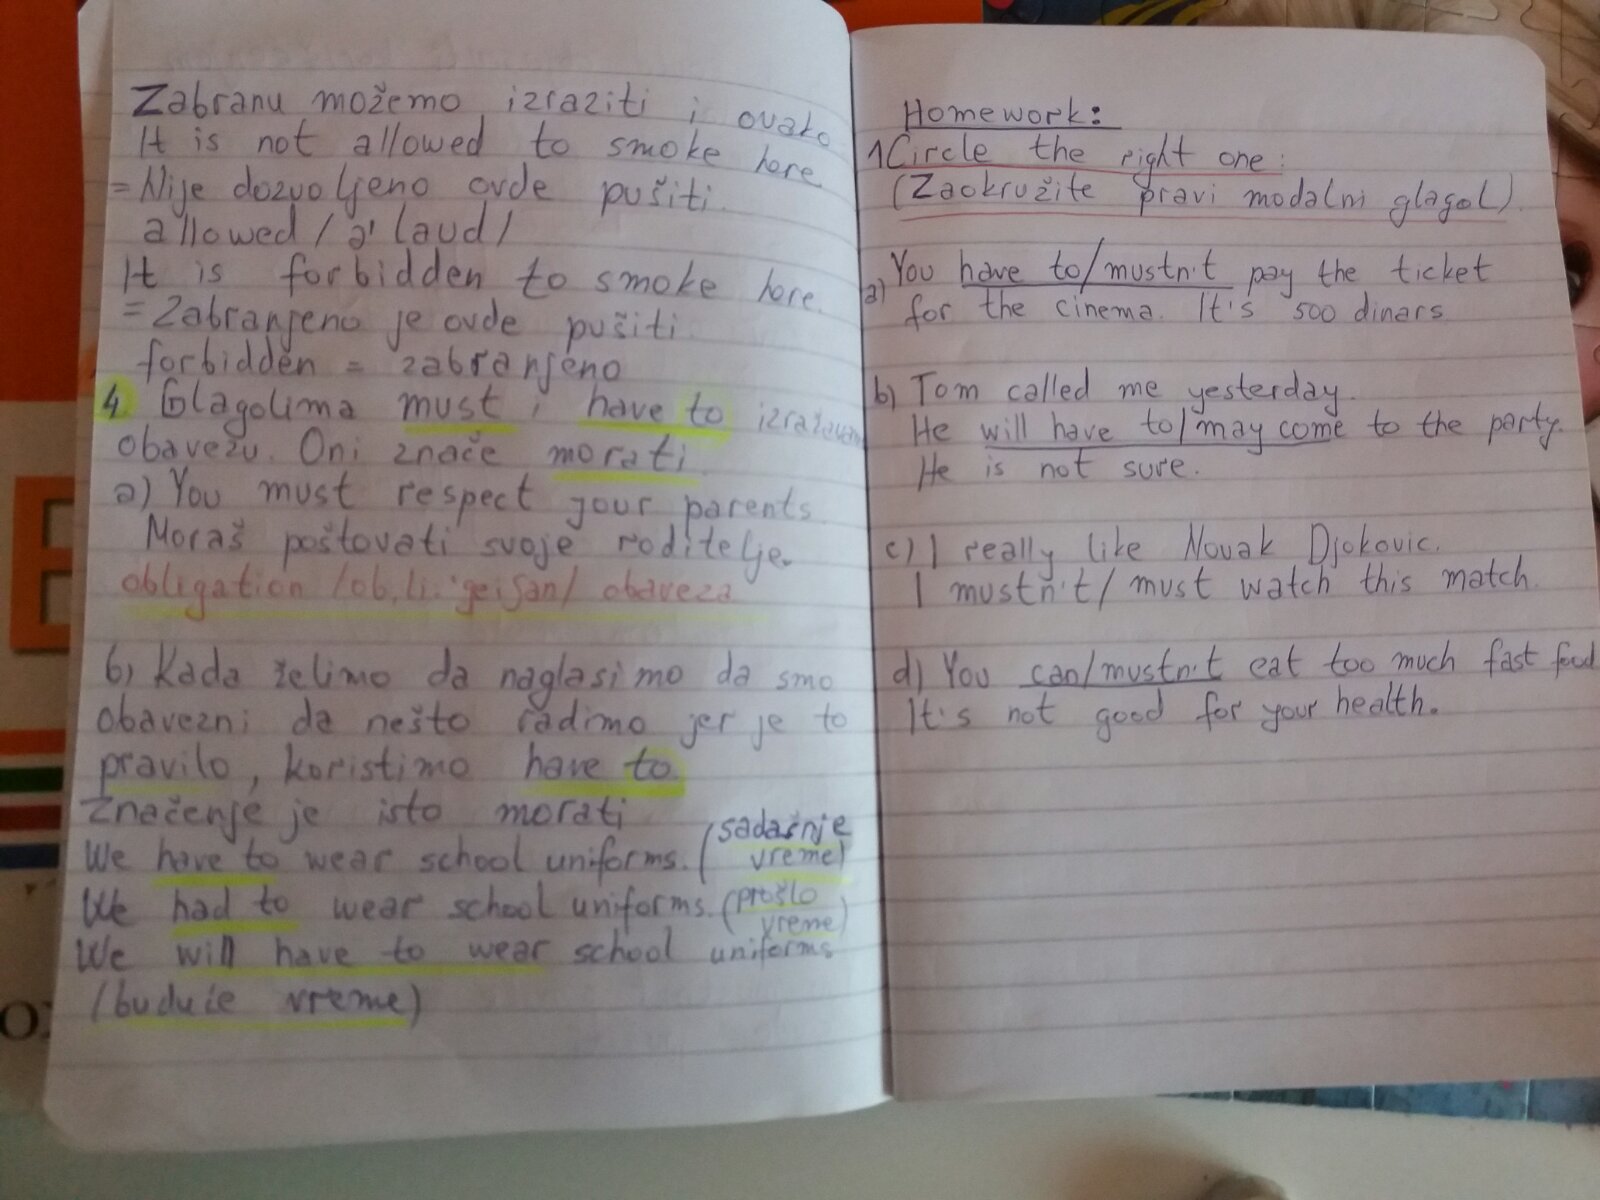 Zabranu možemo izraziti i ovako
It is not allowed to smoke here
= Nije dozvoljeno ovde pušiti.
allowed /ə'laud/
It is forbidden to smoke here.
= Zabranjeno je ovde pušiti.
forbidden = zabranjeno
4 Glagolima must i have to izražavamo
obavezu. Oni znače morati.
a) You must respect your parents.
Moraš poštovati svoje roditelje.
obligation /ob,li:'geiʃən/ obaveza
b) Kada želimo da naglasimo da smo
obavezni da nešto radimo jer je to
pravilo, koristimo have to
Značenje je isto morati
We have to wear school uniforms. (sadašnje
vreme)
We had to wear school uniforms. (prošlo
vreme)
We will have to wear school uniforms
(buduće vreme)
Homework:
1 Circle the right one:
(Zaokružite pravi modalni glagol).
a) You have to/mustn't pay the ticket
for the cinema. It's 500 dinars.
b) Tom called me yesterday.
He will have to/may come to the party.
He is not sure.
c) I really like Novak Djokovic.
I mustn't/must watch this match.
d) You can/mustn't eat too much fast food
It's not good for your health.